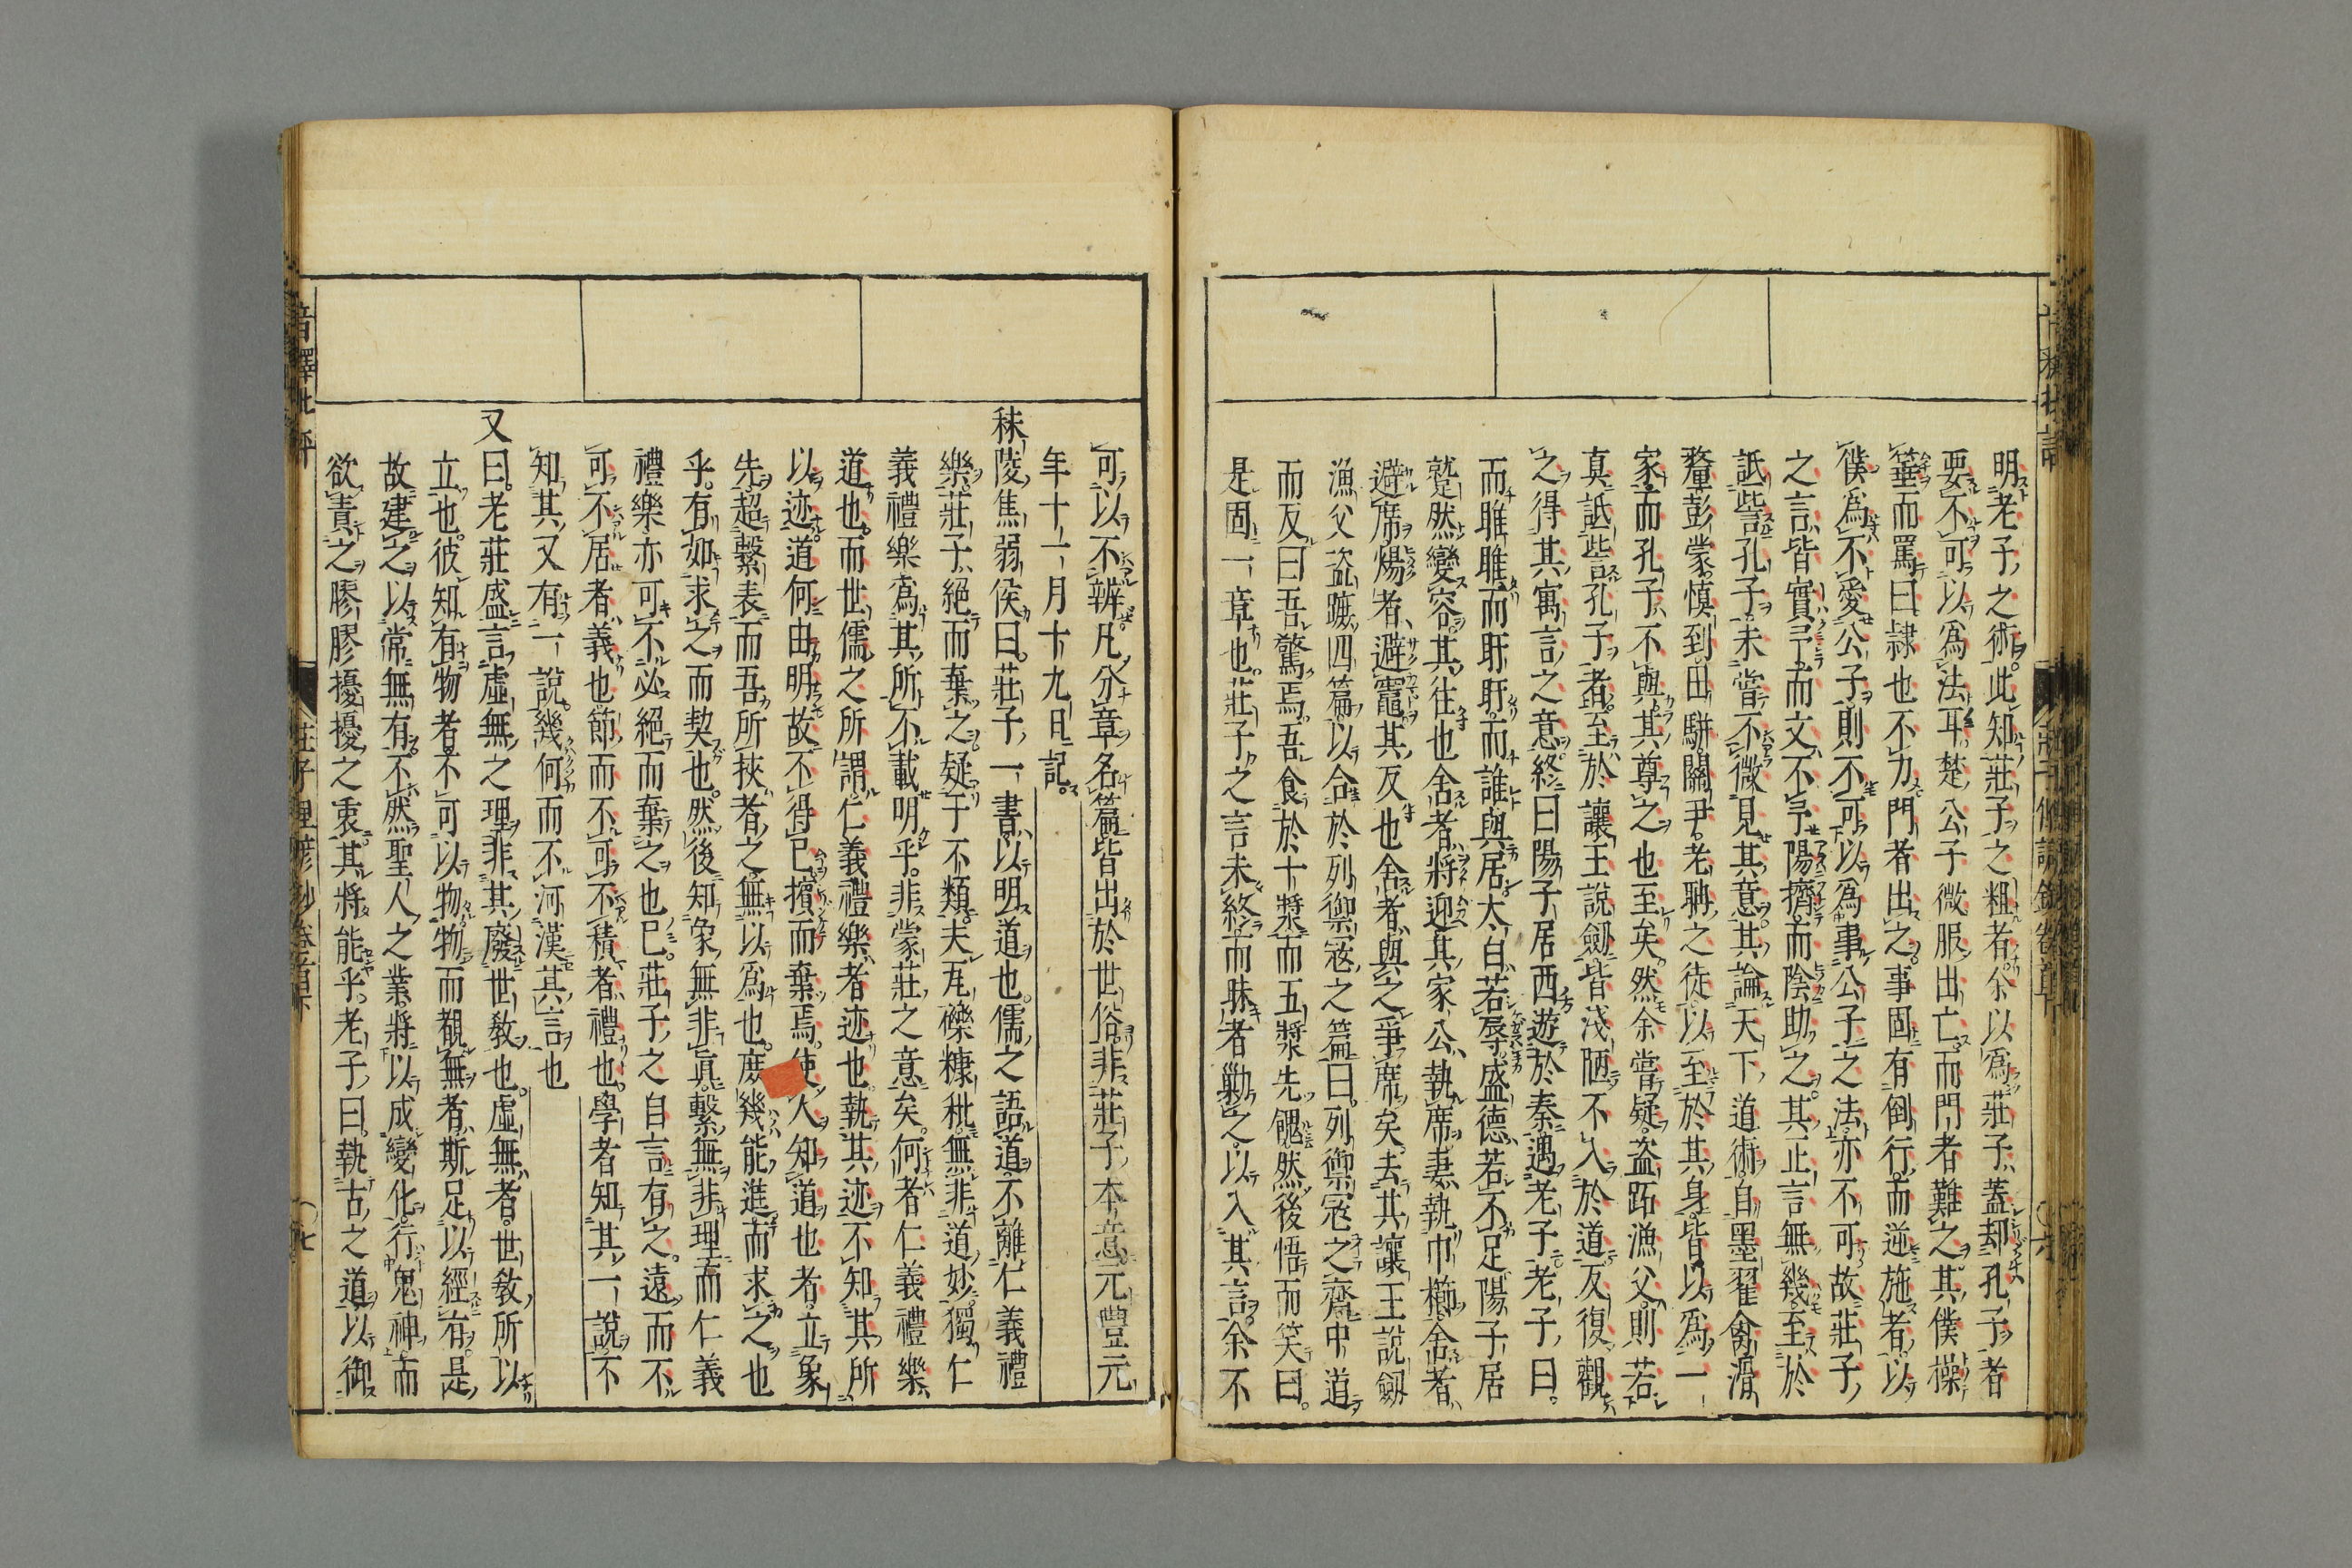 明老子之術此知莊子之粗者余以爲莊子蓋却孔子者
要不可以爲法耳楚公子微服出亡而門者難之其僕操
箠而罵曰隷也不力門者出之事固有倒行而逆施者以
僕爲不愛公子則不可以爲事公子之法亦不可故莊子
之言皆實予而文不予陽擠而陰助之其正言無幾至於
詆訾孔子未嘗不微見其意其論天下道術自墨翟禽滑
釐彭蒙慎到田駢關尹老聃之徒以至於其身皆以爲一
家而孔子不與其尊之也至矣然余嘗疑盗跖漁父則若
真詆訾孔子者至於讓王說劔皆淺陋不入於道反復觀
之得其寓言之意終曰陽子居西遊於秦遇老子老子曰
而睢睢而盱盱而誰與居太白若辱盛德若不足陽子居
蹵然變容其往也舍者將迎其家公執席妻執巾櫛舍者
避席煬者避竈其反也舍者與之爭席矣去其讓王說劔
漁父盗蹠四篇以合於列禦寇之篇曰列禦寇之齊中道
而反曰吾驚焉吾食於十漿而五漿先饋然後悟而笑曰
是固一章也莊子之言未終而昧者勦之以入其言余不
可以不辨凡分章名篇皆出於世俗非莊子本意元豐元
年十一月十九日記
秣陵焦弱侯曰莊子一書以明道也儒之語道不離仁義禮
樂莊子絕而棄之疑于不類夫瓦礫糠秕無非道妙獨仁
義禮樂爲其所不載明乎非蒙莊之意矣何者仁義禮樂
道也而世儒之所謂仁義禮樂者迹也執其迹不知其所
以迹道何由明故不得已擯而棄焉使人知道也者立象
先超繫表而吾所挾者之無以爲也庶幾能進而求之也
乎有如求之而契也然後知象無非眞繫無非理而仁義
禮樂亦可不必絕而棄之也已莊子之自言有之遠而不
可不居者義也節而不可不積者禮也學者知其一說不
知其又有一說幾何而不河漢其言也
又曰老莊盛言虛無之理非其廢世教也虛無者世教所以
立也彼知有物者不可以物物而覩無者斯足以經有是
故建之以常無有不然聖人之業將以成變化行鬼神而
欲責之膠膠擾擾之衷其將能乎老子曰執古之道以御
音釋批評
莊子理諺鈔卷首下
○七